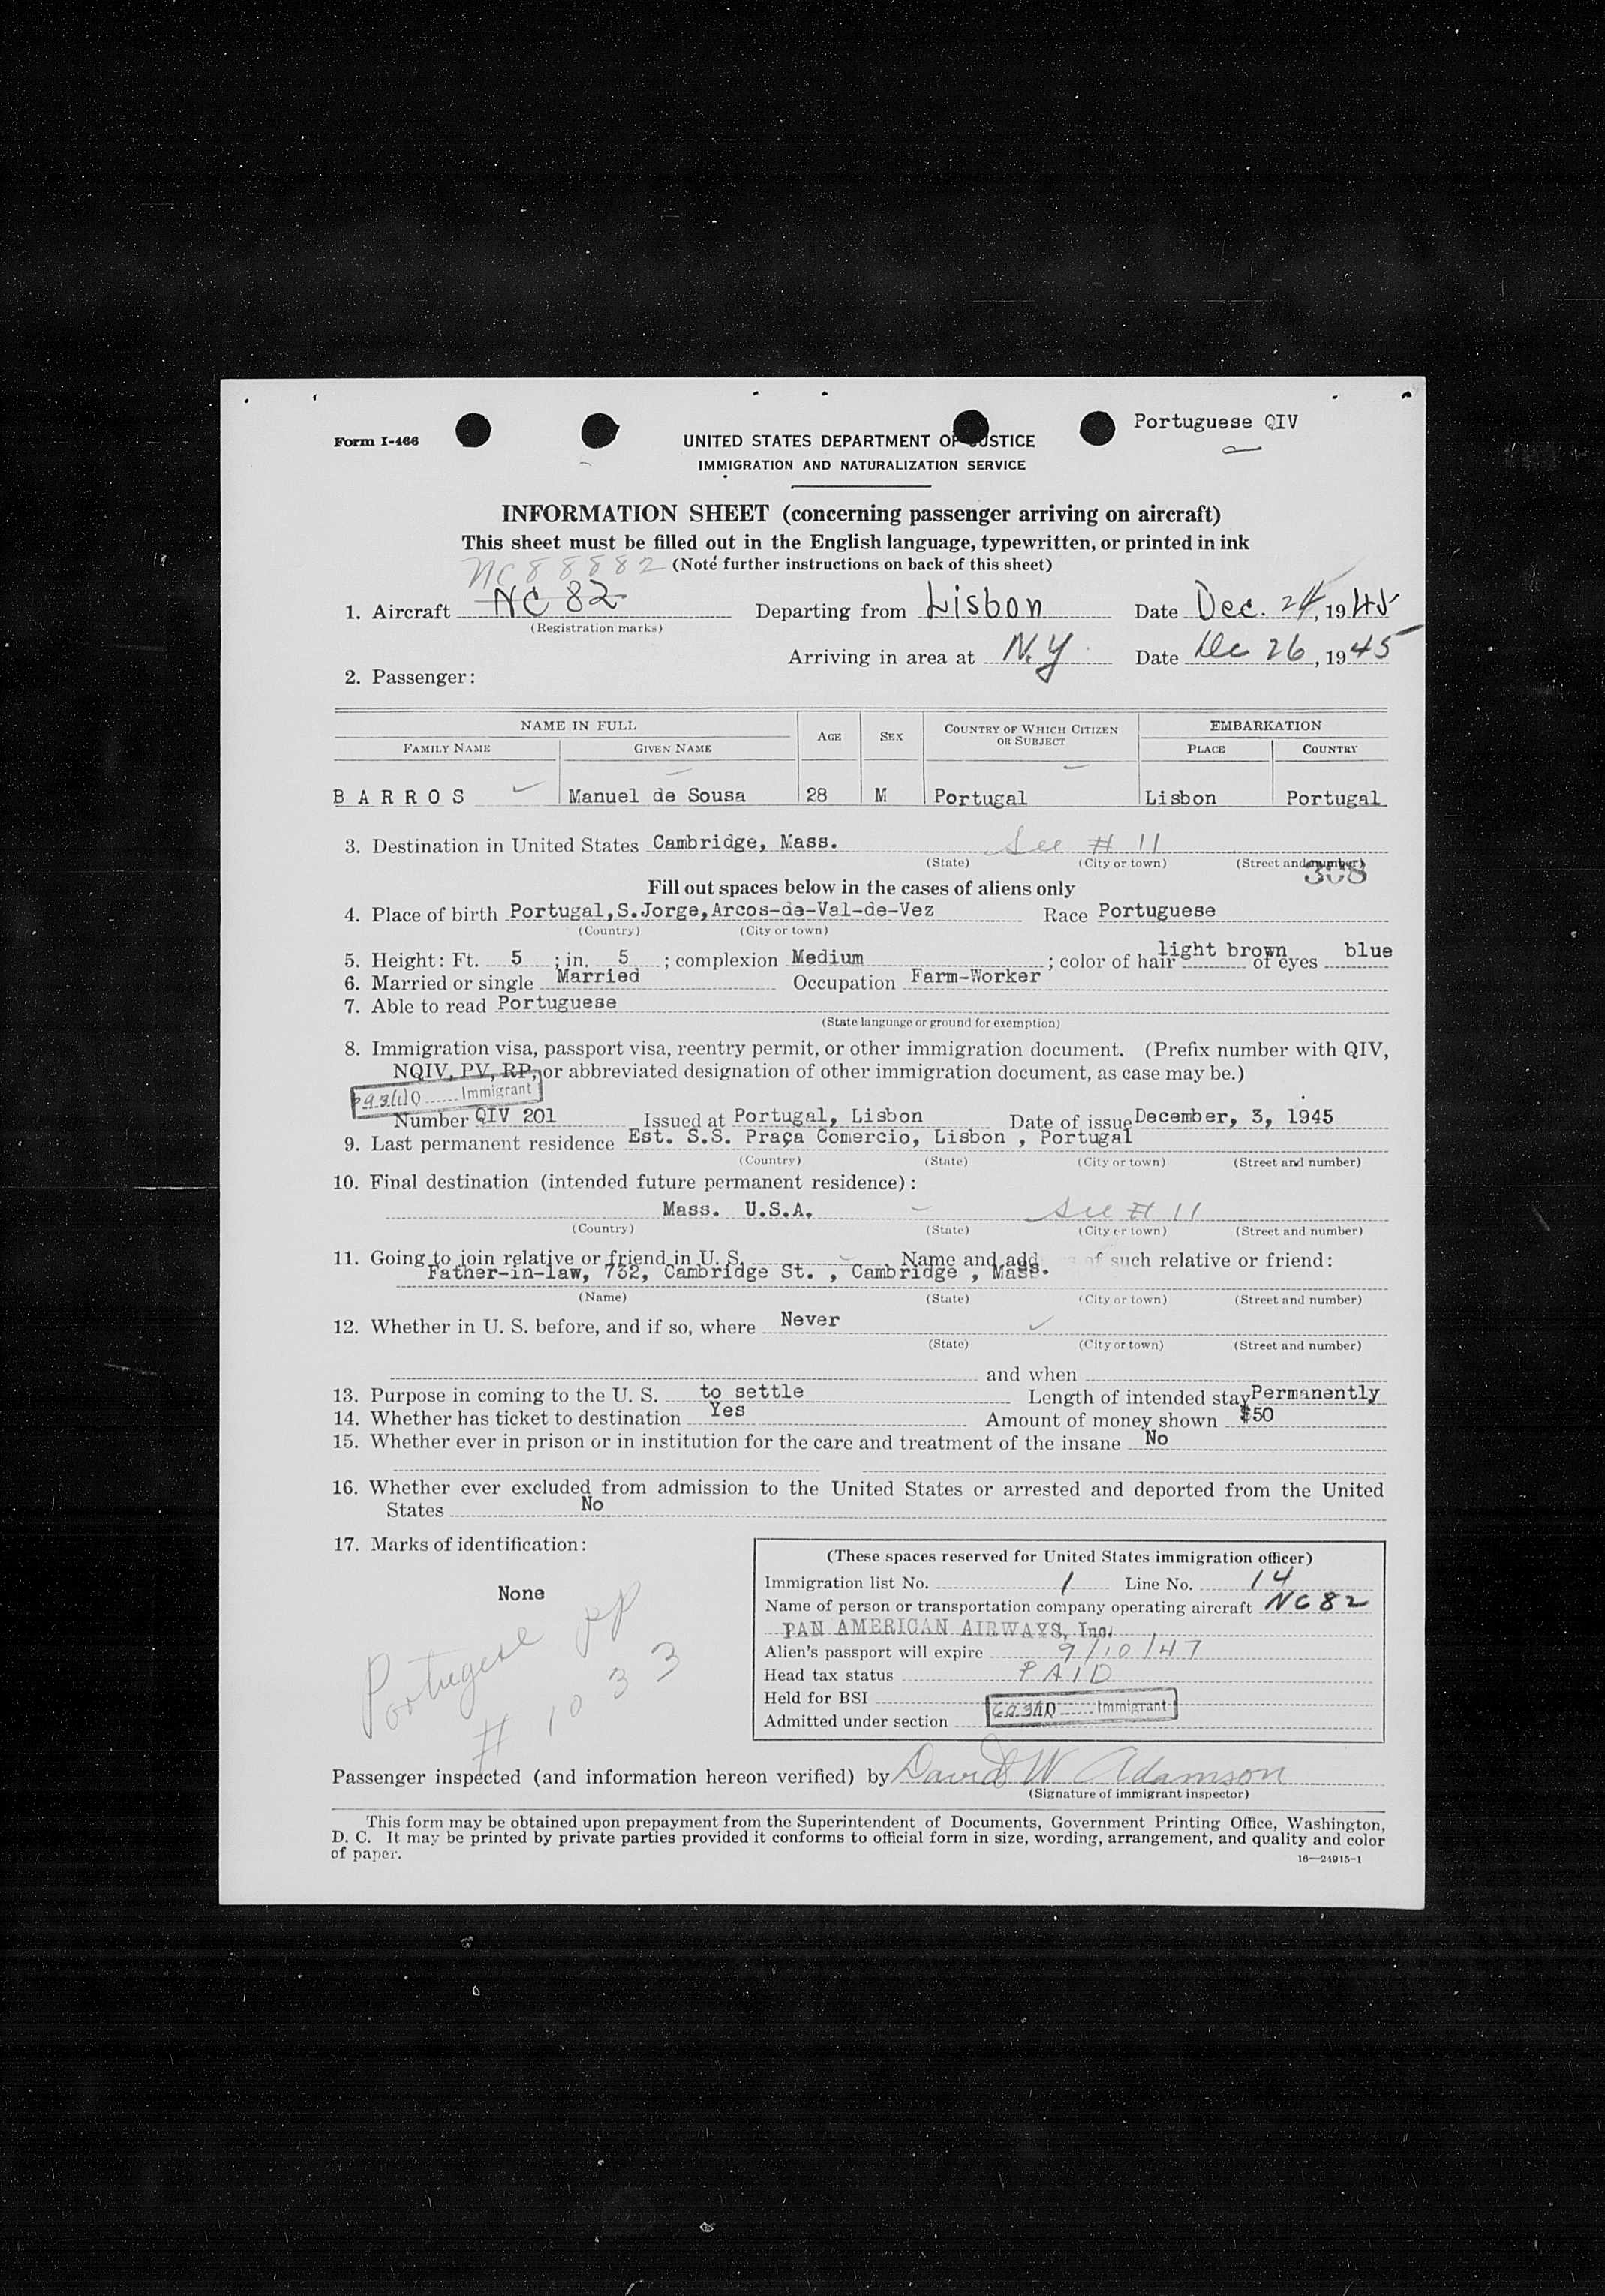 Form I-466
UNITED STATES DEPARTMENT OF JUSTICE
Portuguese QIV
IMMIGRATION AND NATURALIZATION SERVICE
INFORMATION SHEET (concerning passenger arriving on aircraft)
This sheet must be filled out in the English language, typewritten, or printed in ink
NC 88882 (Note further instructions on back of this sheet)
1. Aircraft NC 82 Departing from Lisbon Date Dec. 24, 1945
(Registration marks)
Arriving in area at N.Y. Date Dec 26, 1945
2. Passenger:
NAME IN FULL AGE SEX COUNTRY OF WHICH CITIZEN OR SUBJECT EMBARKATION
FAMILY NAME GIVEN NAME PLACE COUNTRY
BARROS Manuel de Sousa 28 M Portugal Lisbon Portugal
3. Destination in United States Cambridge, Mass. See # 11
(State) (City or town) (Street and number)
308
Fill out spaces below in the cases of aliens only
4. Place of birth Portugal, S.Jorge, Arcos-de-Val-de-Vez Race Portuguese
(Country) (City or town)
5. Height: Ft. 5 ; in. 5 ; complexion Medium ; color of hair light brown of eyes blue
6. Married or single Married Occupation Farm-Worker
7. Able to read Portuguese
(State language or ground for exemption)
8. Immigration visa, passport visa, reentry permit, or other immigration document. (Prefix number with QIV,
NQIV, PV, RP, or abbreviated designation of other immigration document, as case may be.)
Immigrant
Number QIV 201 Issued at Portugal, Lisbon Date of issue December, 3, 1945
9. Last permanent residence Est. S.S. Praça Comercio, Lisbon , Portugal
(Country) (State) (City or town) (Street and number)
10. Final destination (intended future permanent residence):
Mass. U.S.A. See # 11
(Country) (State) (City or town) (Street and number)
11. Going to join relative or friend in U. S. Name and add of such relative or friend:
Father-in-law, 732, Cambridge St. , Cambridge , Mass.
(Name) (State) (City or town) (Street and number)
12. Whether in U. S. before, and if so, where Never
(State) (City or town) (Street and number)
and when
13. Purpose in coming to the U. S. to settle Length of intended stay Permanently
14. Whether has ticket to destination Yes Amount of money shown $50
15. Whether ever in prison or in institution for the care and treatment of the insane No
16. Whether ever excluded from admission to the United States or arrested and deported from the United
States No
17. Marks of identification:
None
Portugese pp
# 1033
(These spaces reserved for United States immigration officer)
Immigration list No. 1 Line No. 14
Name of person or transportation company operating aircraft NC 82
PAN AMERICAN AIRWAYS, Inc.
Alien's passport will expire 9/10/47
Head tax status PAID
Held for BSI
Admitted under section Immigrant
Passenger inspected (and information hereon verified) by David W Adamson
(Signature of immigrant inspector)
This form may be obtained upon prepayment from the Superintendent of Documents, Government Printing Office, Washington,
D. C. It may be printed by private parties provided it conforms to official form in size, wording, arrangement, and quality and color
of paper.
16—24915-1